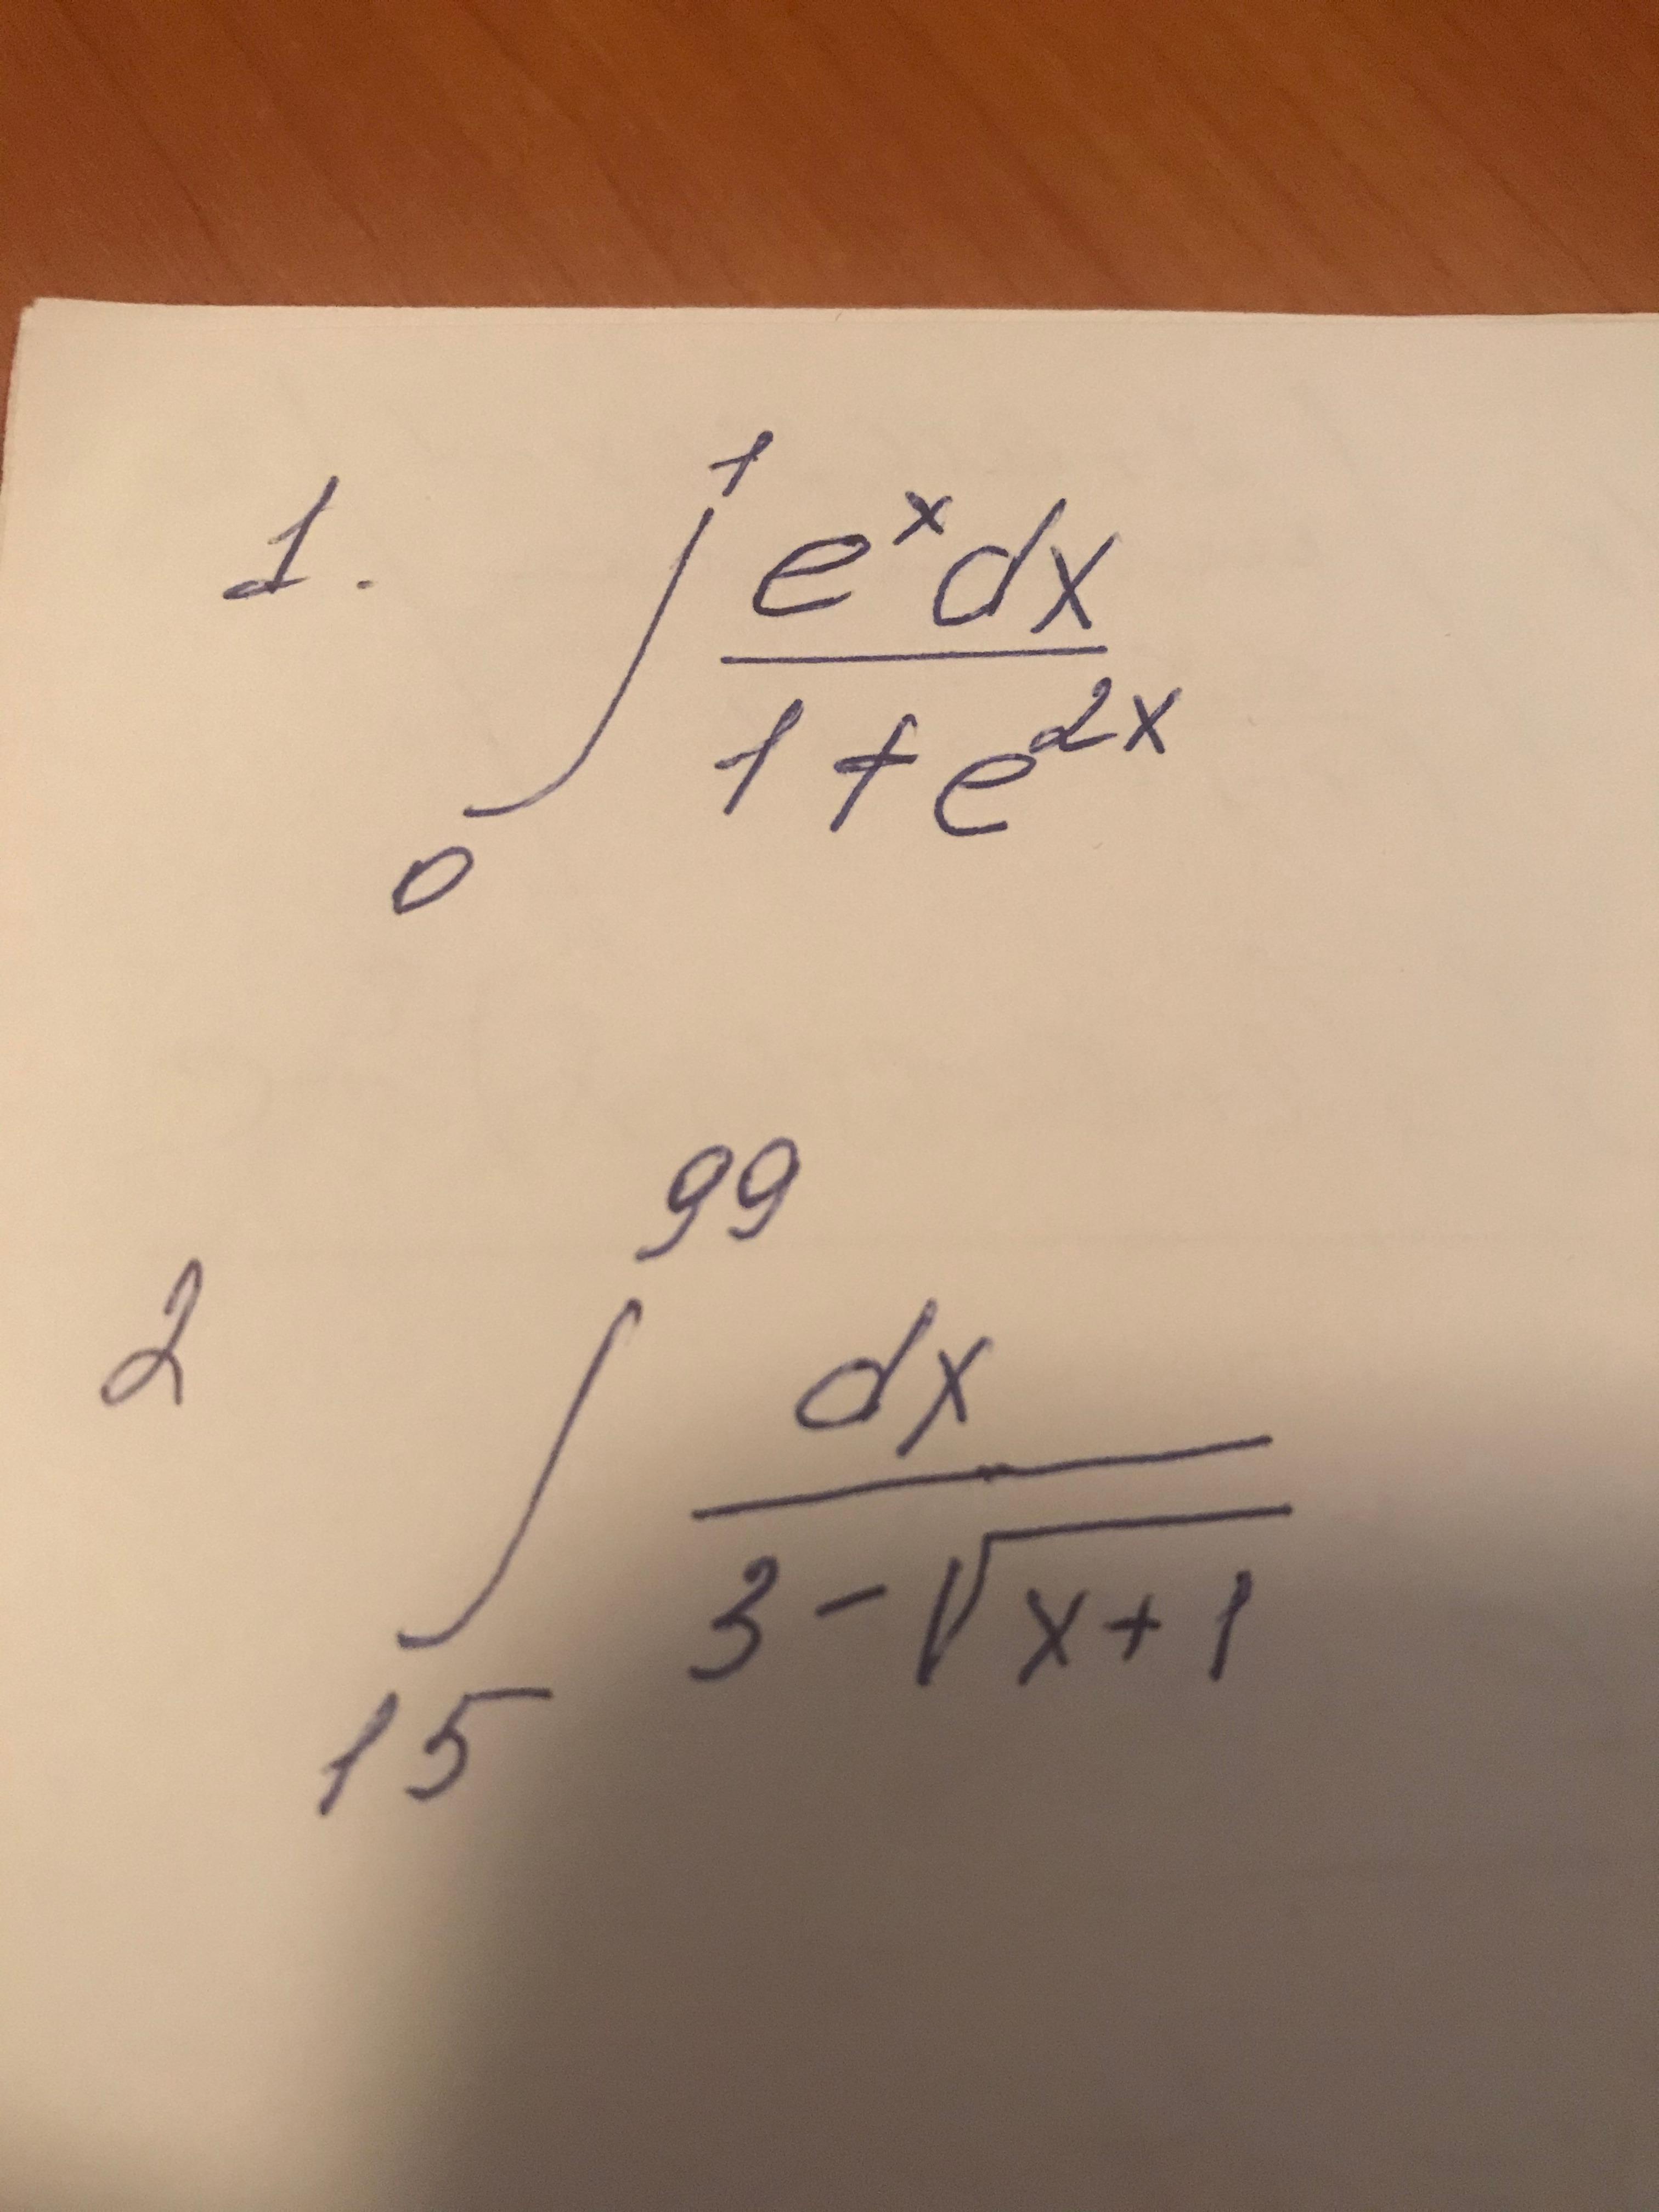 1. ∫₀¹ eˣdx / 1+e²ˣ
2 ∫₁₅⁹⁹ dx / 3-√(x+1)